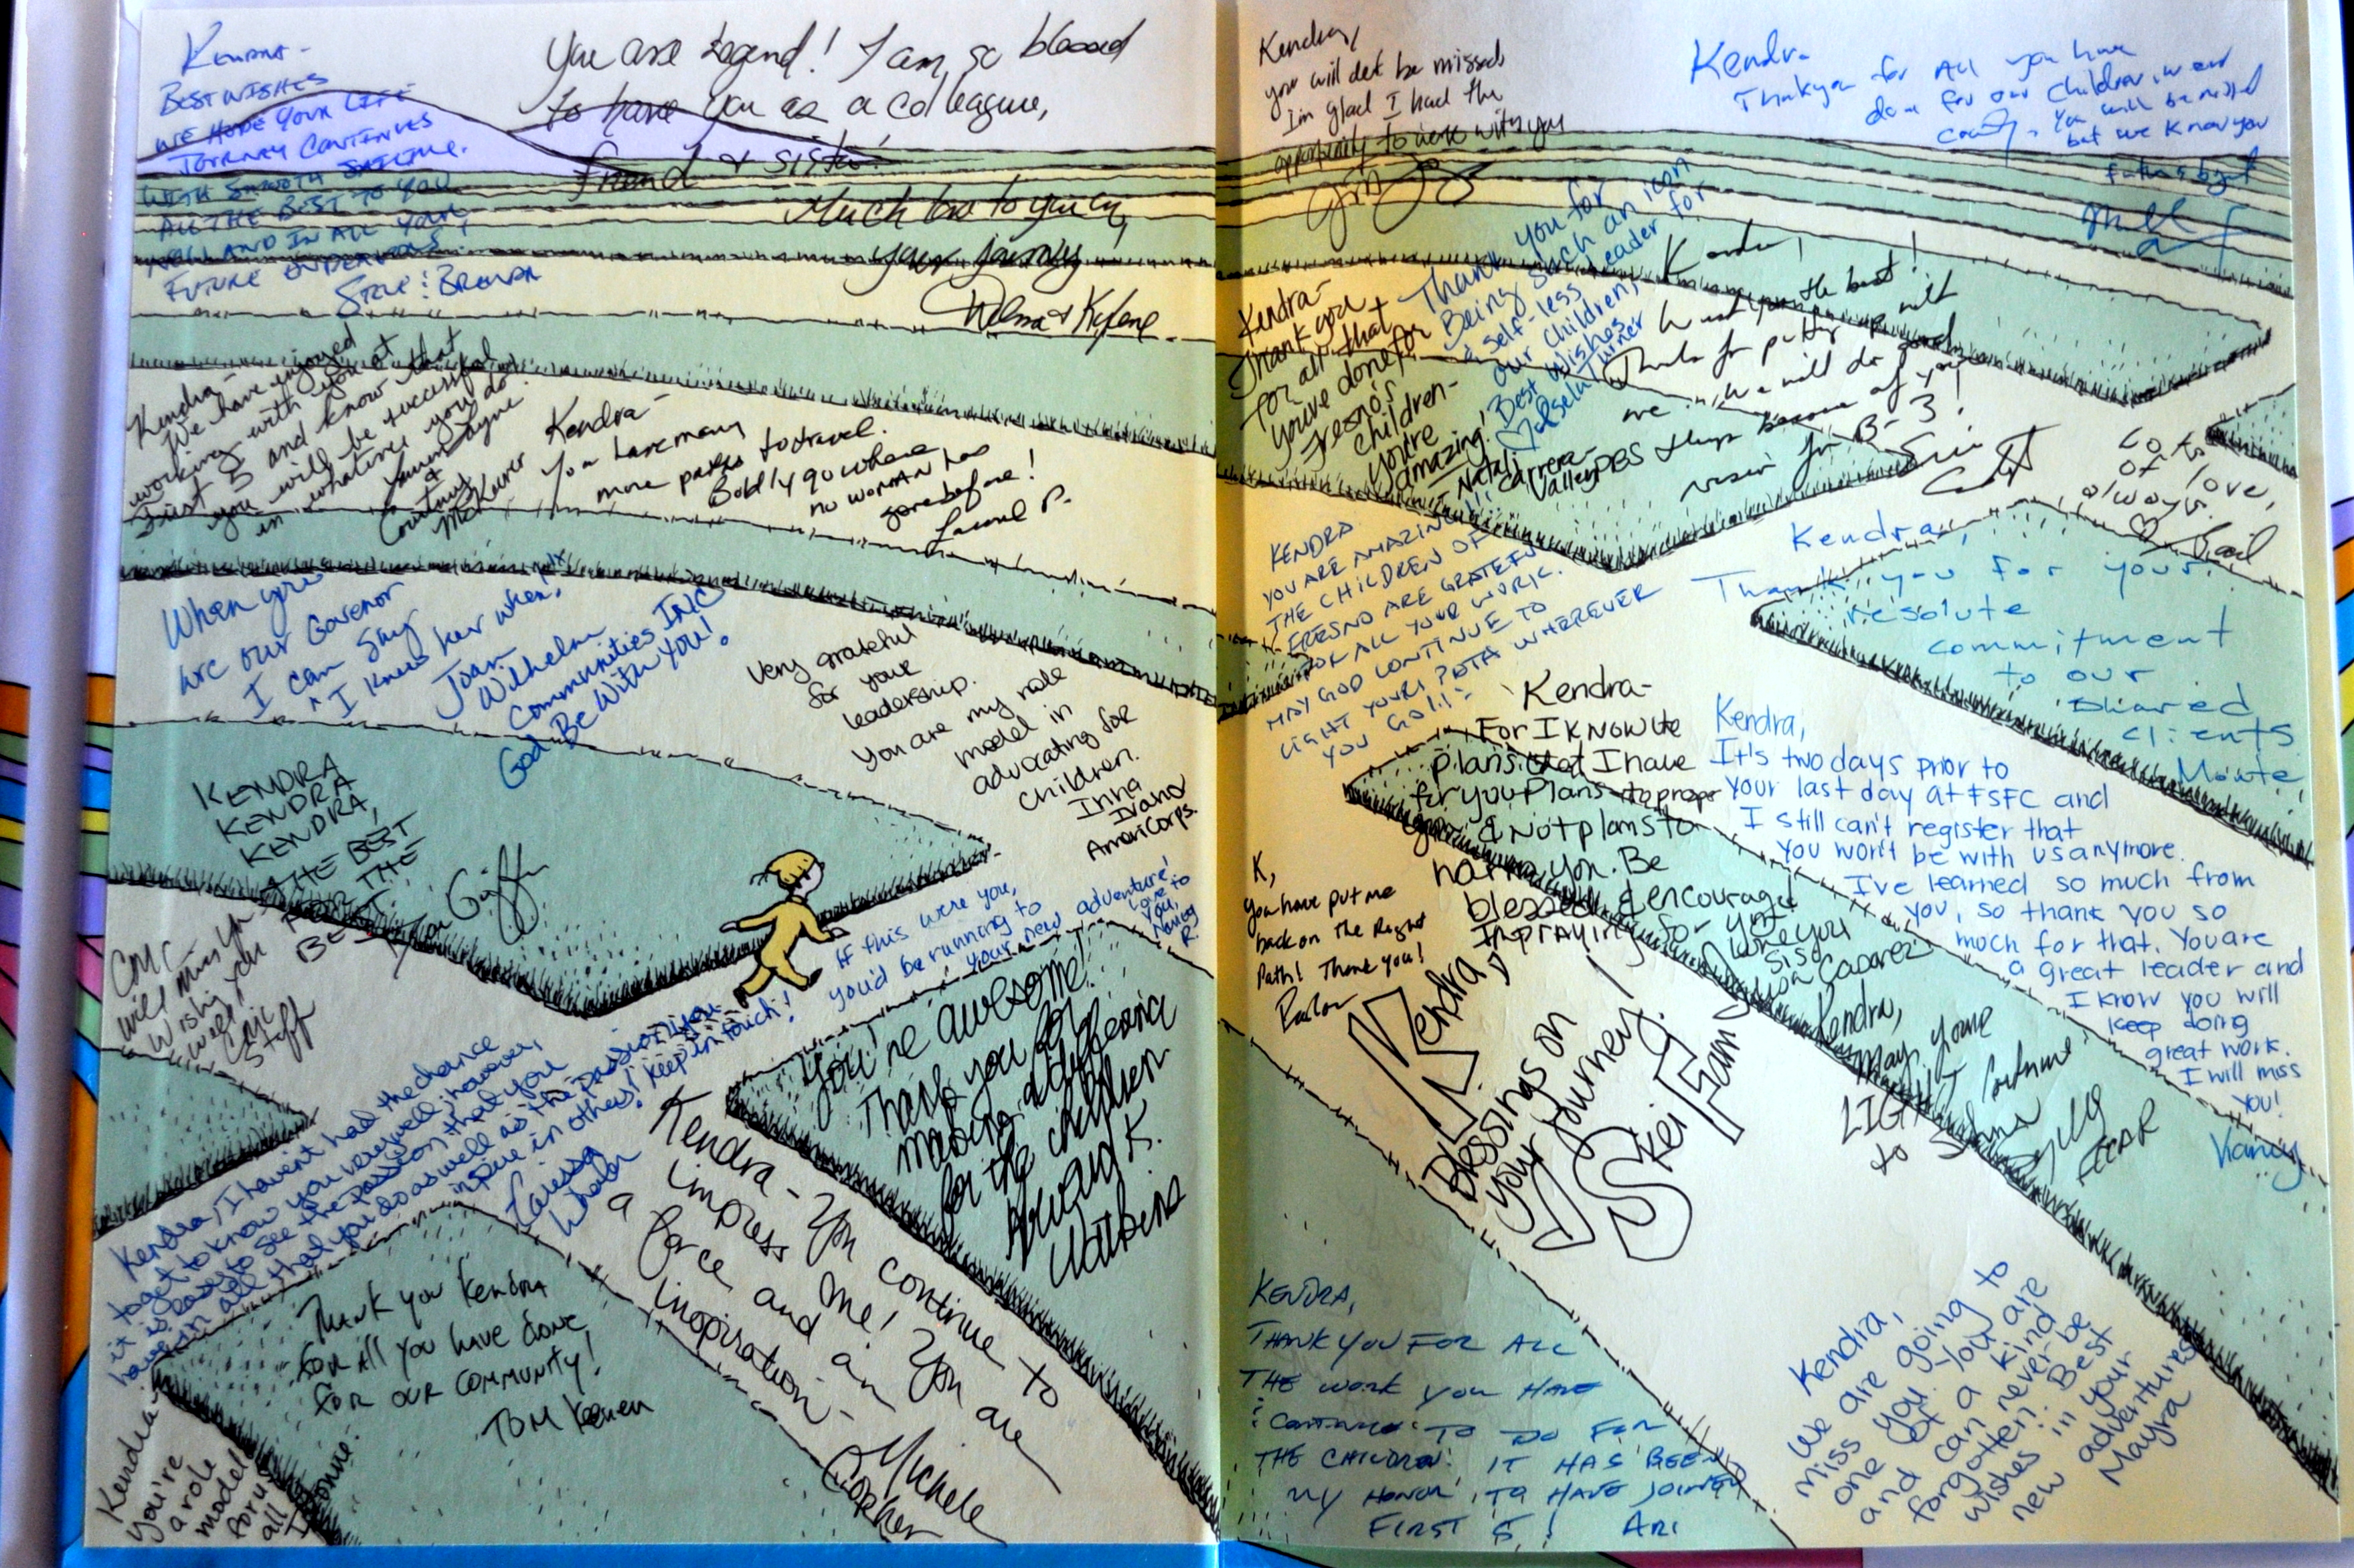 KENDRA-
BEST WISHES
WE HOPE YOUR LIFE
JOURNEY CONTINUES
WITH SMOOTH SAILING.
ALL THE BEST TO YOU
AND IN ALL YOUR
FUTURE ENDEAVORS!
BRENDA
You are legend! I am so blessed
to have you as a colleague,
friend & sister!
Much love to you on
your journey
Kendra-
We have enjoyed
working with you at
First 5 and know that
you will be successful
in whatever you do.
Lauren Payne
&
Courtney
McKeever
Kendra-
You have many
more paths to travel.
Boldly go where
no woman has
gone before!
Laurel P.
When you
are our Govenor
I can say
"I knew her when."
Joan
Wilhelm
Communities INC
God Be With You!
Very grateful
for your
leadership.
You are my role
model in
advocating for
children.
Inna
AmeriCorps.
KENDRA
KENDRA
KENDRA,
THE BEST
FOR THE
BEST.
CMC
will miss you
Wishing you
well!
CMC
Staff
If this were you,
you'd be running to
your new adventure!
Love to
you,
Nancy
R.
Kendra, I haven't had the chance
to get to know you very well, however,
it is easy to see the passion that you
have in all that you do as well as the passion you
inspire in others! Keep in touch!
You're awesome!
Thank you for
making a difference
for the children
Kendra- You continue to
impress me! You are
a force and an
inspiration-
Michele
Copher
Thank you Kendra
for all you have done
for our community!
Tom
Kendra-
you're
a role
model
for us
all
Kendra,
you will be missed,
I'm glad I had the
opportunity to work with you
Kendra
Thank you for All you have
done for our children in our
county. You will be missed
but we know you
future
Kendra-
Thank you
for all that
you've done for
Fresno's
children-
you're
amazing!
Natali
Carrera-
ValleyPBS
Thank you for
Being Such an icon
& self-less leader for
our children,
Best Wishes
Turner
Kendra,
I wish you the best!
Thanks for putting up with
me... We will do good
things because of you
vision for B-3!
Lots
of love,
always.
♡ Gail
KENDRA
YOU ARE AMAZING!!!
THE CHILDREN OF
FRESNO ARE GRATEFUL
FOR ALL YOUR WORK.
MAY GOD CONTINUE TO
LIGHT YOUR PATH WHEREVER
YOU GO!!
Kendra,
Thank you for your
resolute
commitment
to our
shared
clients.
Monte
Kendra-
For I know the
plans that I have
for you Plans to prosper
you & Not plans to
harm you. Be
blessed & encouraged
I'm praying for you
Love you
sis
Kendra,
It's two days prior to
your last day at FSFC and
I still can't register that
you won't be with us anymore.
I've learned so much from
you, so thank you so
much for that. You are
a great leader and
I know you will
keep doing
great work.
I will miss
you!
Viancy
K,
you have put me
back on the Right
Path! Thank you!
Kendra,
Blessings on
your journey!
Skei Fam
Kendra,
May your
LIGHT continue
to shine
KENDRA,
THANK YOU FOR ALL
THE WORK YOU HAVE
& CONTINUE TO DO FOR
THE CHILDREN. IT HAS BEEN
MY HONOR TO HAVE JOINED
FIRST 5! ARI
Kendra,
We are going to
miss you. You are
one of a kind
and can never be
forgotten. Best
wishes in your
new adventures
Mayra